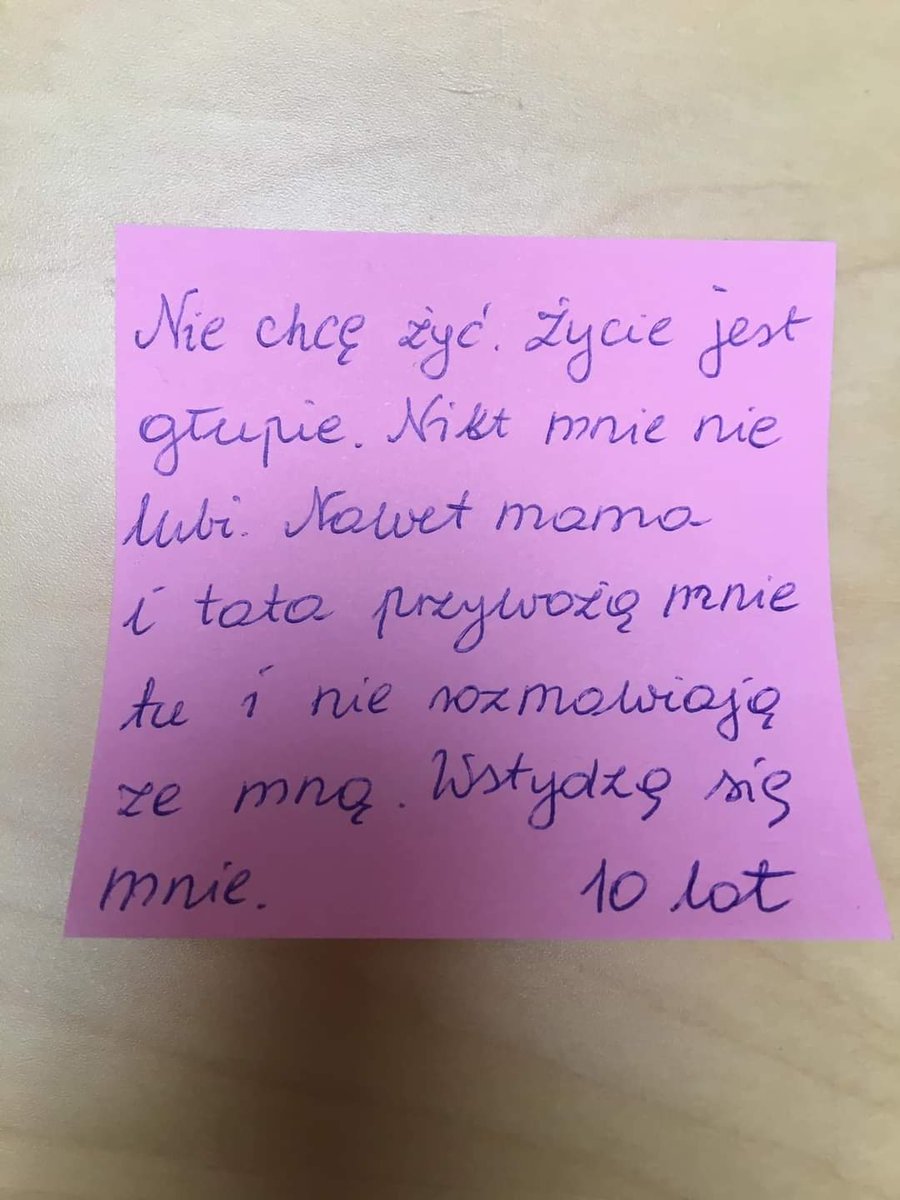 Nie chcę żyć. Życie jest
głupie. Nikt mnie nie
lubi. Nawet mama
i tata przywożą mnie
tu i nie rozmawiają
ze mną. Wstydzę się
mnie. 10 lat